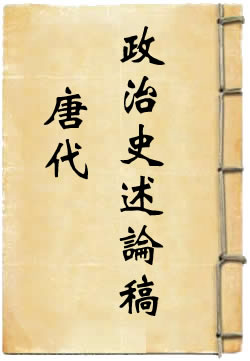 政治史述論稿
唐代